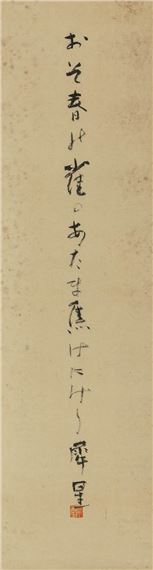 おそ春の雀のあたま焦げにけり 犀星